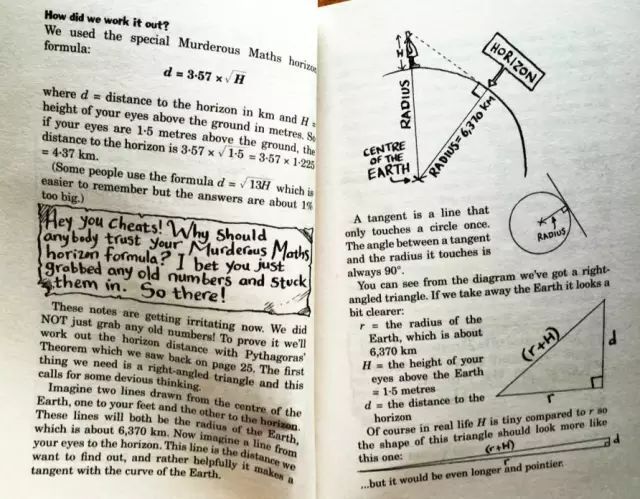 How did we work it out?
We used the special Murderous Maths horizon
formula:
d = 3·57 × √H
where d = distance to the horizon in km and H =
height of your eyes above the ground in metres. So
if your eyes are 1·5 metres above the ground, the
distance to the horizon is 3·57 × √1·5 = 3·57 × 1·225
= 4·37 km.
(Some people use the formula d = √13H which is
easier to remember but the answers are about 1%
too big.)
Hey you cheats! Why Should
anybody trust your Murderous Maths
horizon formula? I bet you just
grabbed any old numbers and stuck
them in. So there!
These notes are getting irritating now. We did
NOT just grab any old numbers! To prove it we'll
work out the horizon distance with Pythagoras'
Theorem which we saw back on page 25. The first
thing we need is a right-angled triangle and this
calls for some devious thinking.
Imagine two lines drawn from the centre of the
Earth, one to your feet and the other to the horizon.
These lines will both be the radius of the Earth,
which is about 6,370 km. Now imagine a line from
your eyes to the horizon. This line is the distance we
want to find out, and rather helpfully it makes a
tangent with the curve of the Earth.
H
HORIZON
RADIUS
RADIUS=6,370 KM
CENTRE
OF THE
EARTH
A tangent is a line that
only touches a circle once.
The angle between a tangent
and the radius it touches is
always 90°.
RADIUS
You can see from the diagram we've got a right-
angled triangle. If we take away the Earth it looks a
bit clearer:
r = the radius of the
Earth, which is about
6,370 km
H = the height of your
eyes above the Earth
= 1·5 metres
d = the distance to the
horizon
(r+H)
d
r
Of course in real life H is tiny compared to r so
the shape of this triangle should look more like
this one:
(r+H)
d
r
...but it would be even longer and pointier.